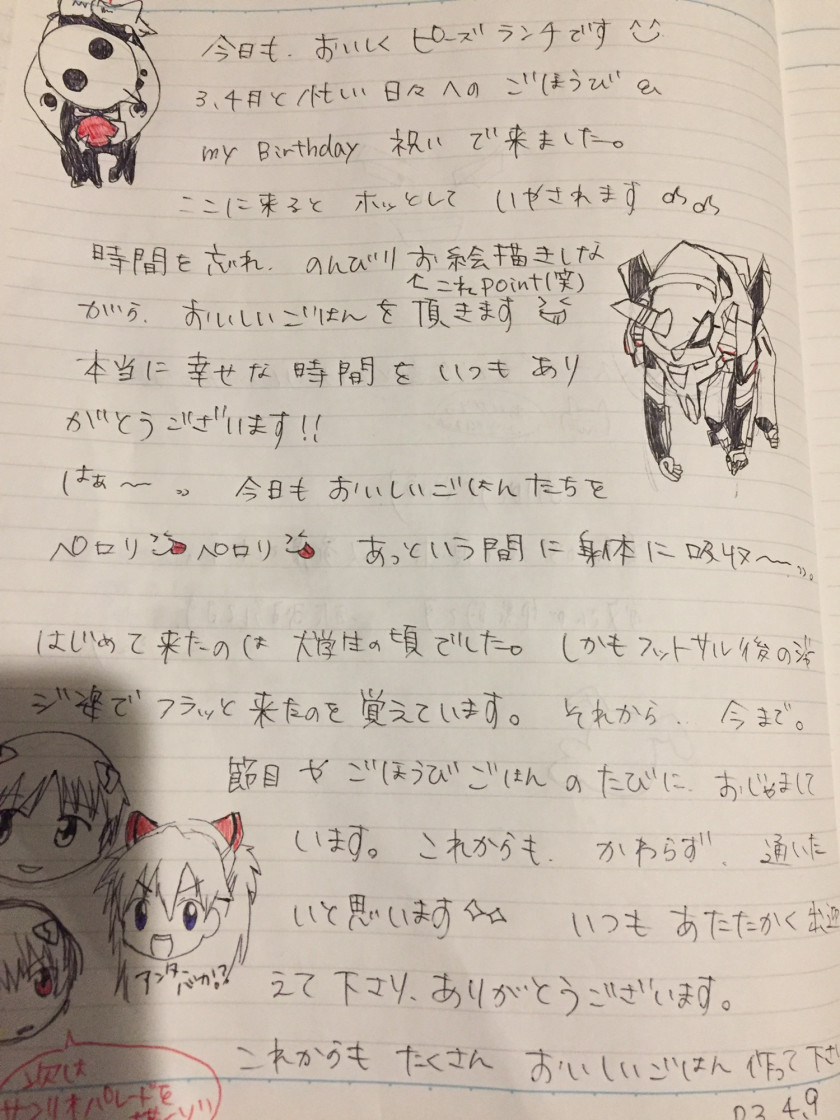 今日も、おいしく ピローズ ランチです
3、4月と忙しい日々への ごほうび &
my Birthday 祝いで来ました。
ここに来ると ホッとして いやされます
時間を忘れ、のんびり お絵描きしな
↑これpoint(笑)
がら、おいしいごはんを頂きます
本当に幸せな時間をいつもあり
がとうございます!!
はぁ〜 今日もおいしいごはんたちを
ペロリ ペロリ あっという間に身体に吸収〜
はじめて来たのは 大学生の頃でした。しかもフットサル後の
ジ姿でフラッと来たのを覚えています。それから、今まで。
節目やごほうびごはんのたびに、おじゃまして
います。これからも、かわらず、通いた
いと思います☆☆ いつもあたたかく出迎
えて下さり、ありがとうございます。
アンタバカ!?
これからも たくさん おいしいごはん作って下さ
次は
サンリオパレードを
R3.4.9